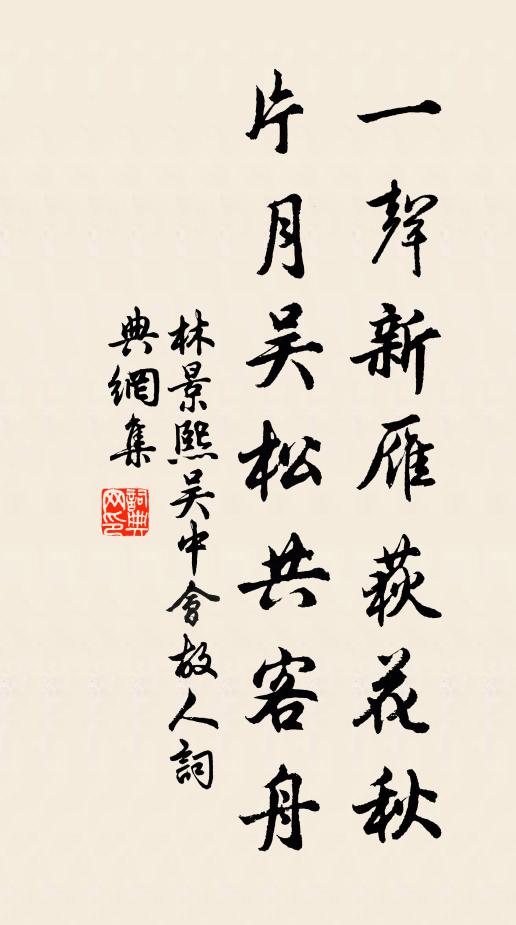 一聲新雁荻花秋
片月吴松共客舟
林景熙吴中會故人詞
典網集
詞典网印